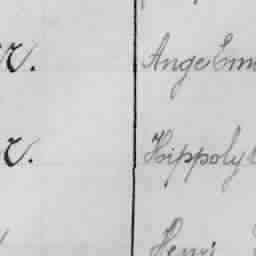 r. Ange Em
r. Hippoly
Henri